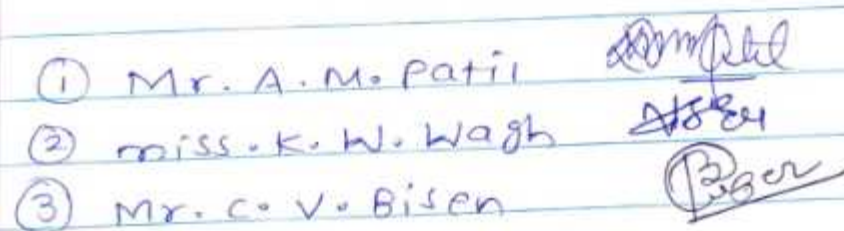 ① Mr. A. M. Patil
② miss. K. W. Wagh
③ Mr. C. V. Bisen